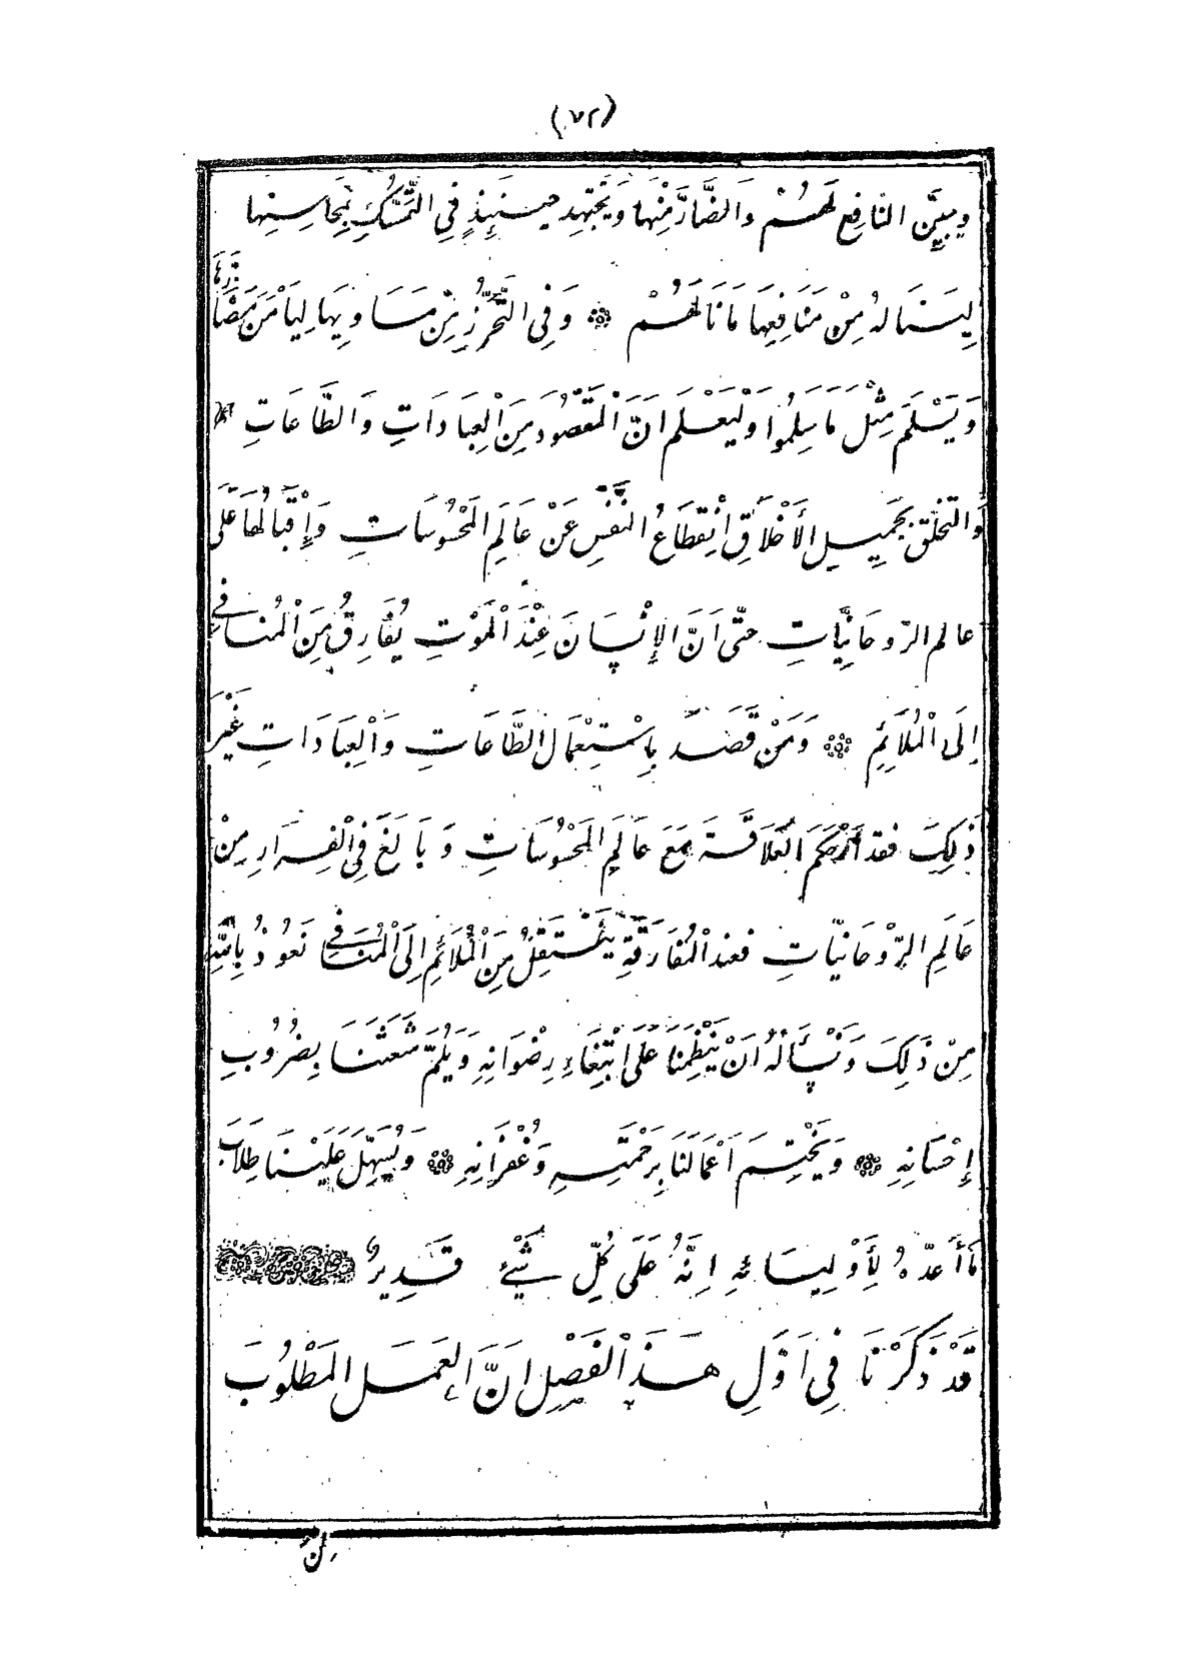 (٧٢)
وَيُبَيِّنَ النَافِعِ لَهُمْ وَالضَّارَّ مِنْهَا وَيَجْتَهِد حِينَئِذٍ فِي التَّمَسُّكِ بِمَحَاسِنِهَا
لِيَنَالهُ مِنْ مَنَافِعِهَا مَا نَالَهُمْ ۞ وَفِي التَّحَرُّزِ مِّنْ مَسَاوِيهَا لِيَأْمَنَ مَضَا
رَّهَا
وَيَسْلَمَ مِثْلَ مَا سَلِمُوا وَلْيَعْلَم اَنَّ الْمَقْصُودَ مِنَ الْعِبَادَاتِ وَالطَّاعَاتِ
وَالتخلّق بجَمِيلِ الأَخْلَاقِ انْقِطَاعُ النَّفْسِ عَنْ عَالَمِ الْمَحْسُوسَاتِ وَإِقْبَالُهَا عَلَى
عالم الرّوحَانِيَّاتِ حتّى اَنَّ الإِنْسَانَ عِنْدَ الْمَوْتِ يُفَارِقُ مِنَ الْمُنَافِي
إِلَى الْمُلَائِمِ ۞ وَمَنْ قَصَدَ بِاسْتِعْمَالِ الطَّاعَاتِ وَالْعِبَادَاتِ غَيْرَ
ذَلِكَ فقد أَحْكَمَ العَلَاقَةَ مَعَ عَالَمِ الْمَحْسُوسَاتِ وَبَالَغَ فِي الْفِرَارِ مِنْ
عَالَمِ الرّوْحَانيّاتِ فعند الْمُفَارَقَةِ يَنْتَقِلُ مِنَ الْمُلَائِمِ إِلَى الْمُنَافِي نَعُوذُ بِاللَّهِ
مِنْ ذَلِكَ وَنَسْأَلُهُ اَنْ يَنْظِمَنَا عَلَى ابْتِغَاءِ رِضْوَانِهِ وَيَلُمَّ شَعَثَنَا بِضُرُوبِ
إِحْسَانِهِ ۞ وَيَخْتِمَ اَعْمَالَنَا بِرَحْمَتِهِ وَغُفْرَانِهِ ۞ وَيُسَهِّلَ عَلَيْنَا طِلَابَ
مَا أَعَدّهُ لِأَوْلِيَائهِ اِنَّهُ عَلَى كُلِّ شَيْءٍ قَدِيرٌ
قَدْ ذَكَرْنَا فِي اَوَّلِ هَذَا الْفَصْلِ اَنَّ العَمَلَ الْمَطْلُوبَ
مِنْ